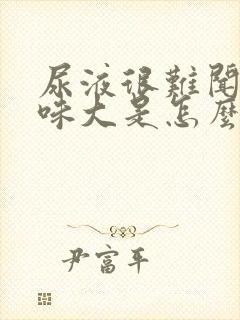 尿液很難聞
味大是怎麼
尹富平